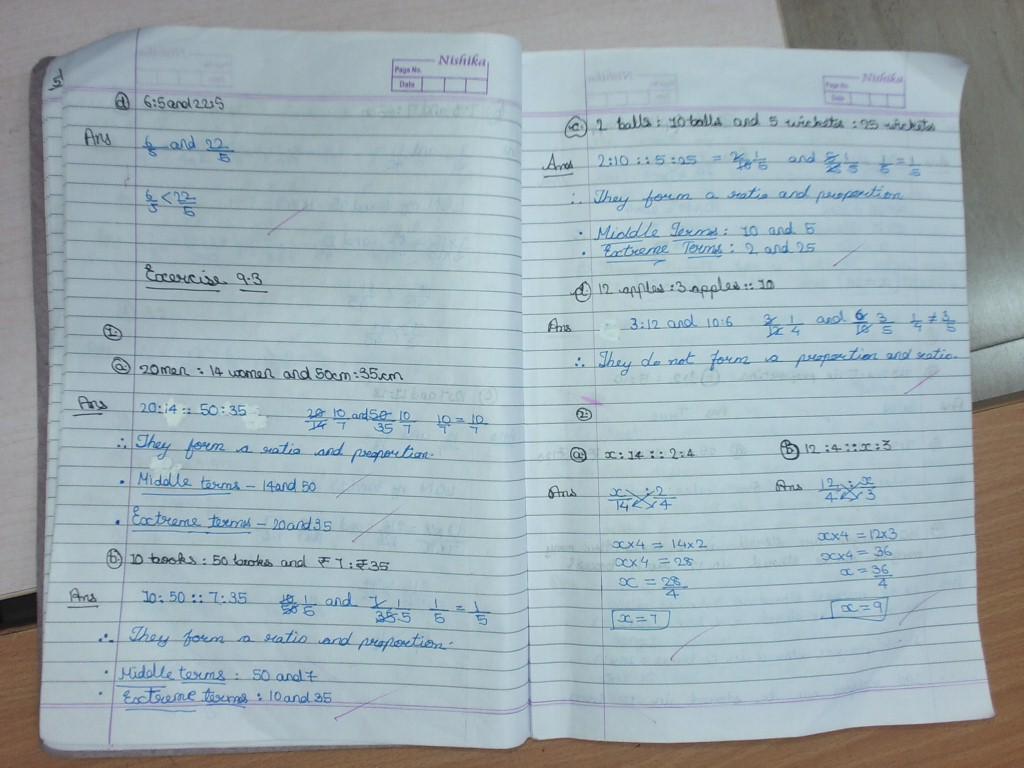 Nishika
Page No.
Date
(d) 6:5 and 22:5
Ans 6/5 and 22/5
6/5 < 22/5
Exercise 9.3
1.
(a) 20men : 14 women and 50cm:35cm
Ans 20:14 :: 50:35 20/14 10/7 and 50/35 10/7 10/7 = 10/7
∴ They form a ratio and proportion.
• Middle terms - 14 and 50
• Extreme terms - 20 and 35
(b) 10 books : 50 books and ₹7 : ₹35
Ans 10:50 :: 7:35 10/50 1/5 and 7/35 1/5 1/5 = 1/5
∴ They form a ratio and proportion.
• Middle terms : 50 and 7
• Extreme terms : 10 and 35
Nishika
Page No.
Date
(c) 2 balls : 10 balls and 5 wickets : 25 wickets
Ans 2:10 :: 5:25 = 2/10 1/5 and 5/25 1/5 1/5 = 1/5
∴ They form a ratio and proportion
• Middle Terms : 10 and 5
• Extreme Terms : 2 and 25
(d) 12 apples : 3 apples :: 10
Ans 3:12 and 10:6 3/12 1/4 and 6/10 3/5 1/4 ≠ 3/5
∴ They do not form a proportion and ratio.
2.
(a) x:14 :: 2:4 (b) 12:4 :: x:3
Ans x/14 : 2/4 Ans 12/4 : x/3
x×4 = 14×2 x×4 = 12×3
x×4 = 28 x×4 = 36
x = 28/4 x = 36/4
x = 7 x = 9